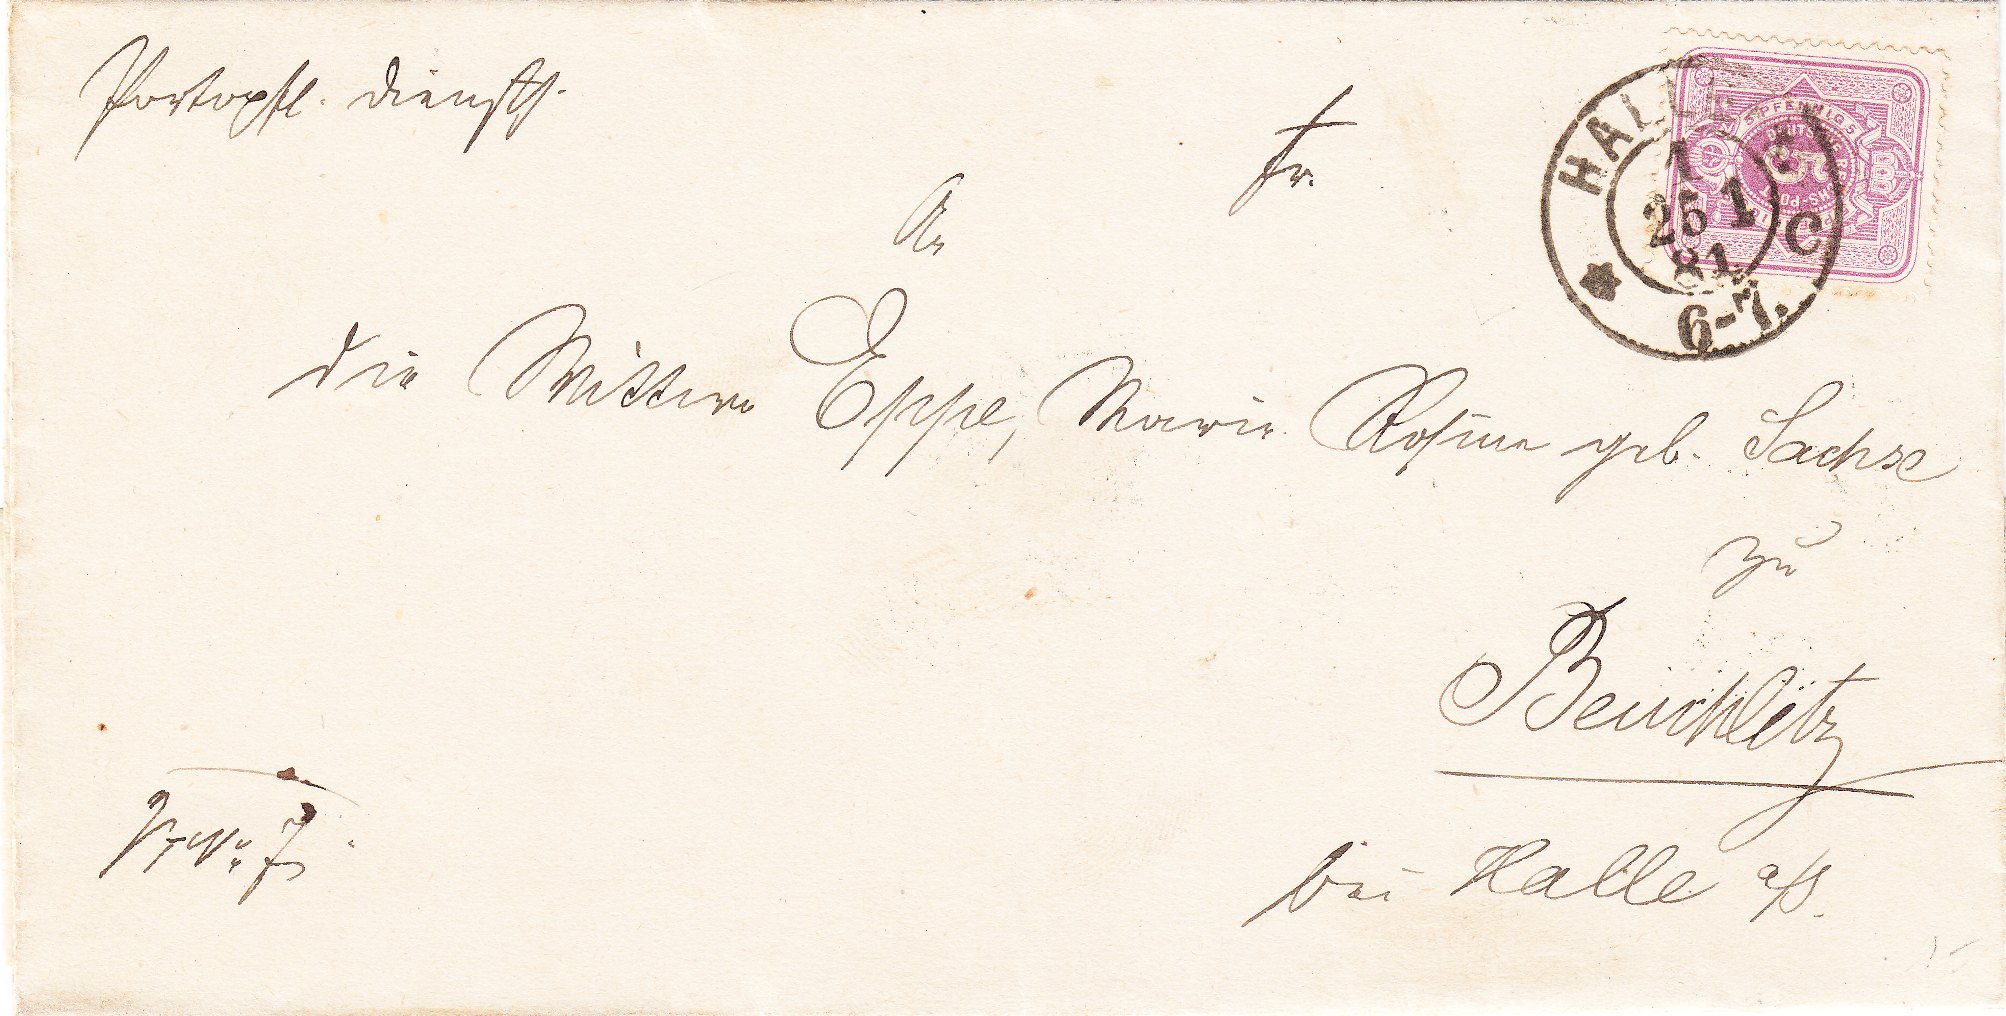 Portopfl. Diensts.
fr.
An
die Wittwe Eppe, Marie Rosine geb. Sachse
zu
Beuchlitz
bei Halle a/S.
HALLE
1
25 1
81
C
6-7.
5 PFENNIG 5
DEUTSCHE REICHS-POST
5